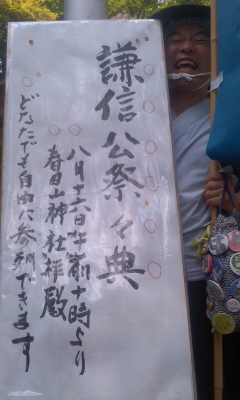 謙信公祭々典
八月十六日午前十時より
春日山神社拝殿
どなたでも自由に参列できます